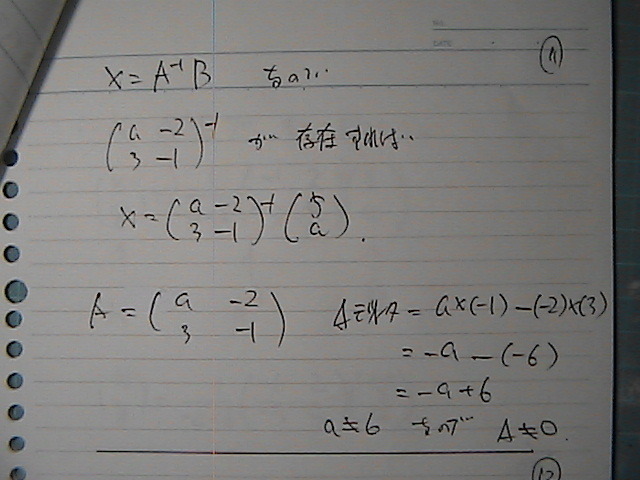 NO.
DATE
⑪
X = A⁻¹B なので
(a -2
3 -1)⁻¹ が 存在すれば..
X = (a -2
3 -1)⁻¹ (5
a).
A = (a -2
3 -1)
= a×(-1) - (-2)×(3)
= -a - (-6)
= -a + 6
a≠6 なので A≠0.
⑫